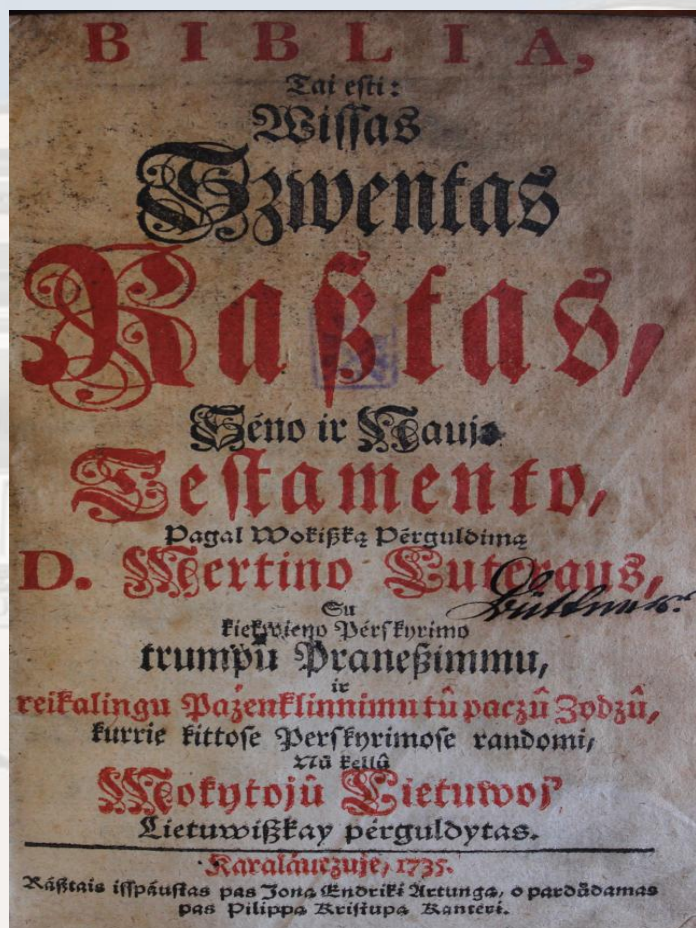 BIBLIA,
Tai eſti:
Wiſſas
Szwentas
Raßtas,
Séno ir Naujo
Teſtamento,
Pagal Wokißką Pérguldimą
D. Mertino Luteraus,
Su
kiekwieno Pérſkyrimo
trumpû Praneßimmu,
ir
reikalingu Paźenklinnimu tû paczû Zodzû,
kurrie kittoſe Perſkyrimoſe randomi,
Nů kellû
Mokytojû Lietuwoj'
Lietuwißkay pérguldytas.
Karaláuczuje, 1735.
Ráßtais iſſpáuſtas pas Joną Endrikį Artungą, o pardůdamas
pas Pilippą Kriſtupą Kanterį.
Büttner.